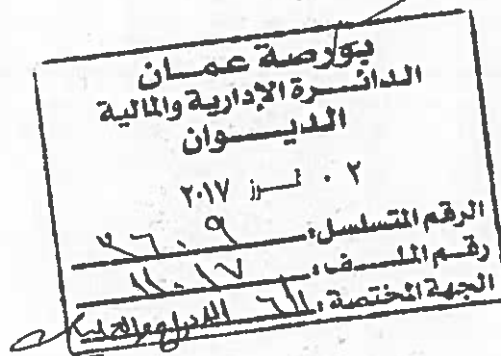 بورصة عمان
الدائرة الإدارية والمالية
الديوان
٠٢ تموز ٢٠١٧
الرقم المتسلسل: ٣٦٠٩
رقم الملف: ١١٠١٧
الجهة المختصة: